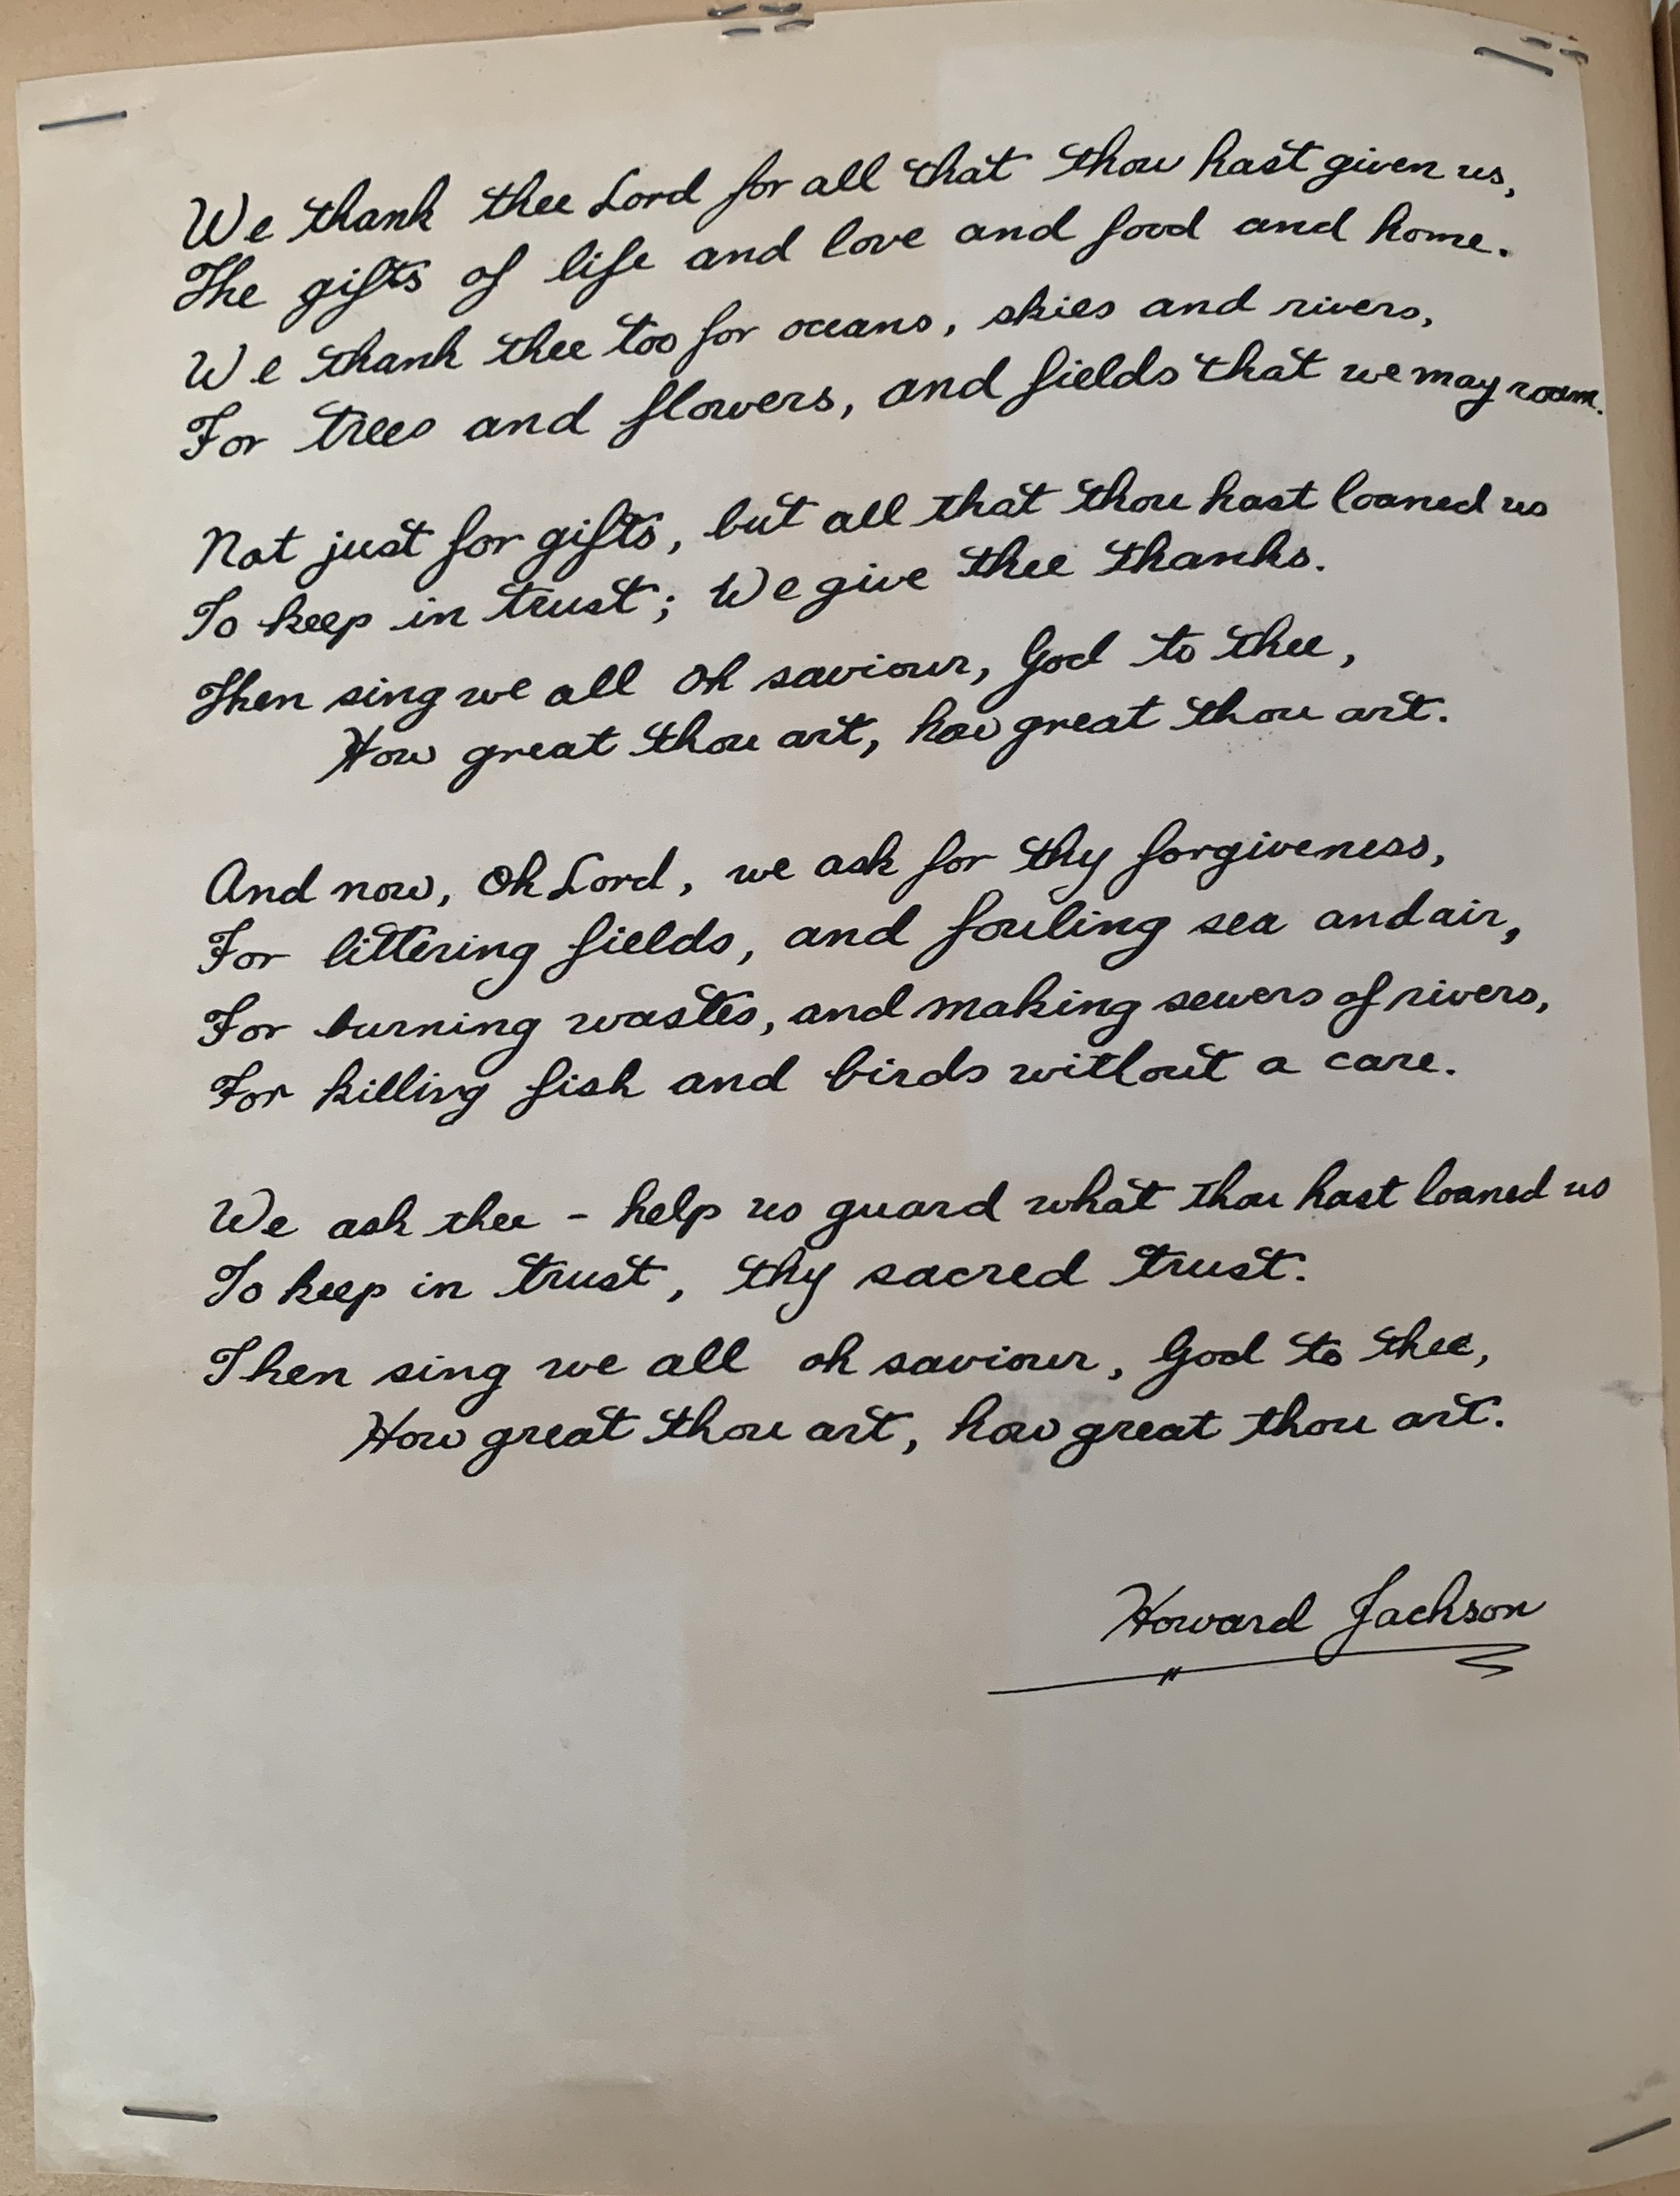 We thank thee Lord for all that thou hast given us,
The gifts of life and love and food and home.
We thank thee too for oceans, skies and rivers,
For trees and flowers, and fields that we may roam.
Not just for gifts, but all that thou hast loaned us
To keep in trust; We give thee thanks.
Then sing we all Oh saviour, God to thee,
How great thou art, how great thou art.
And now, Oh Lord, we ask for thy forgiveness,
For littering fields, and fouling sea and air,
For burning wastes, and making sewers of rivers,
For killing fish and birds without a care.
We ask thee - help us guard what thou hast loaned us
To keep in trust, thy sacred trust.
Then sing we all oh saviour, God to thee,
How great thou art, how great thou art.
Howard Jackson